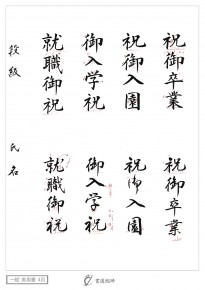 祝御卒業
祝御入園
御入学祝
就職御祝
段級
祝御卒業
祝御入園
御入学祝
就職御祝
氏名